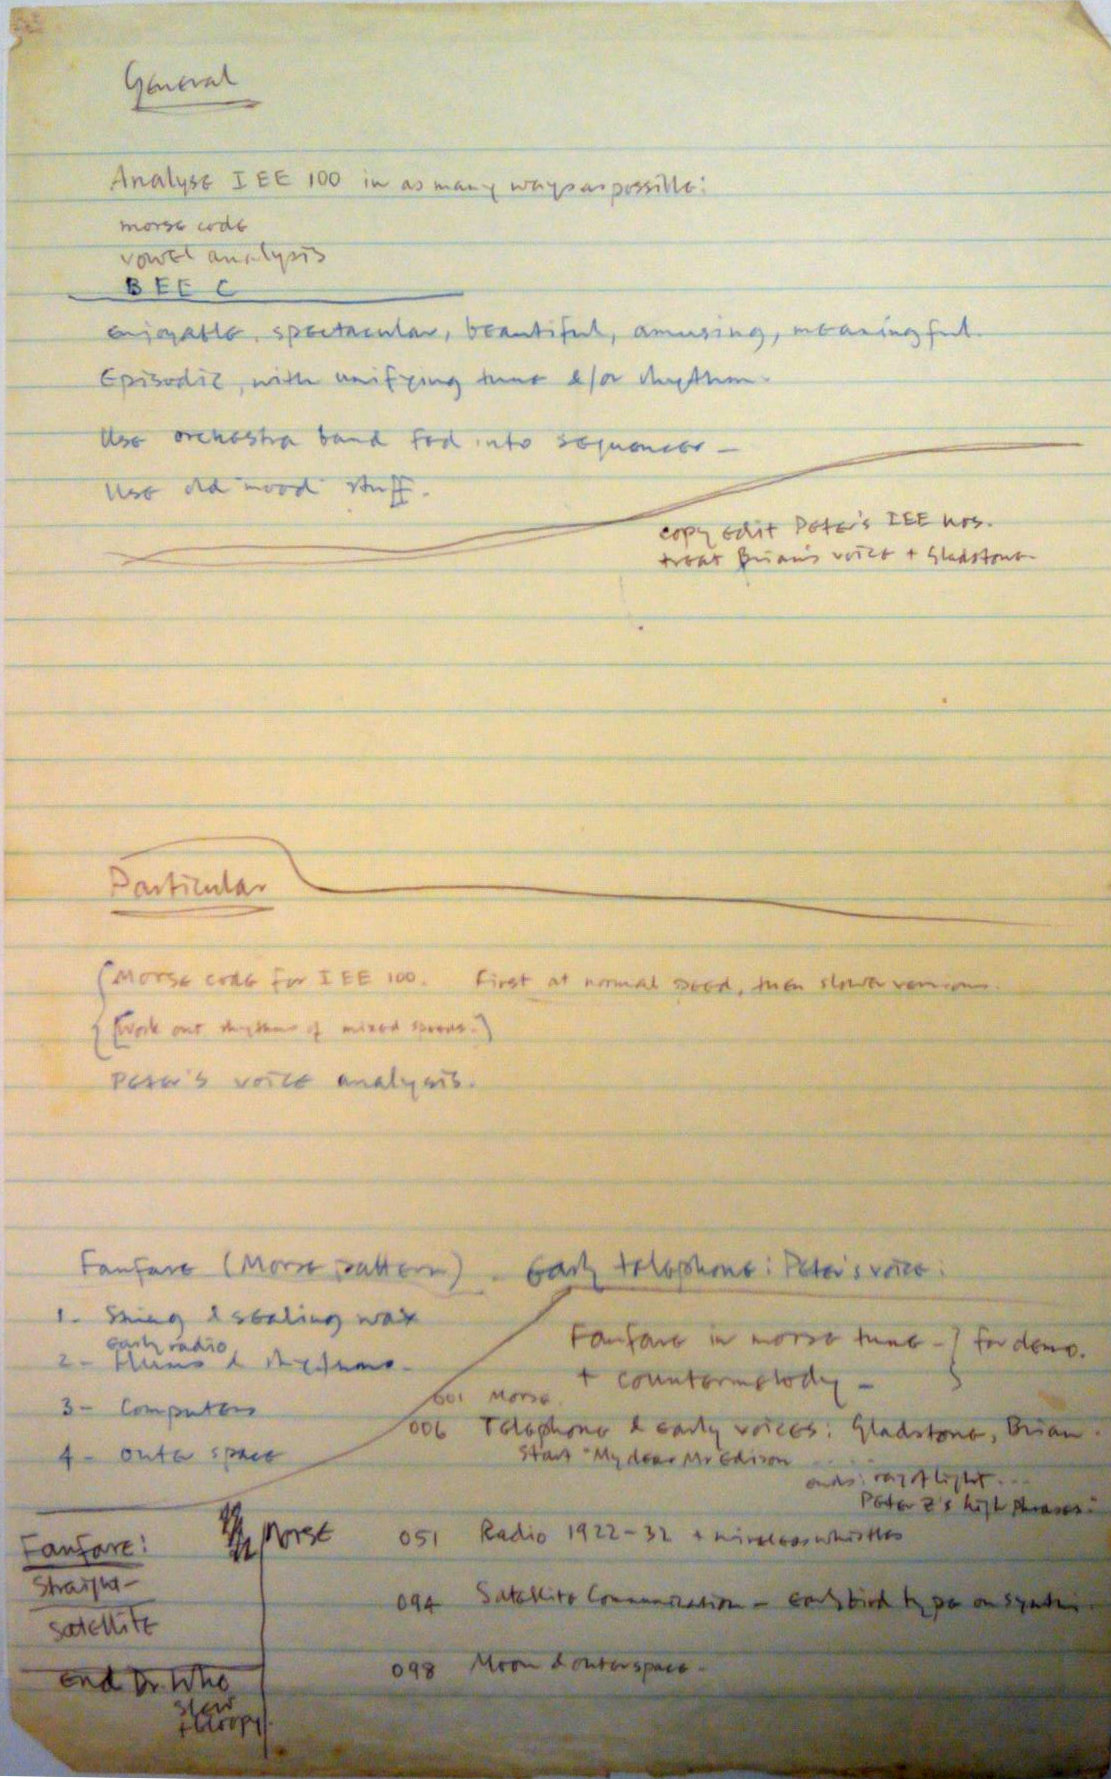 General
Analyse IEE 100 in as many ways as possible:
morse code
vowel analysis
BEE C
enjoyable, spectacular, beautiful, amusing, meaningful.
Episodic, with unifying tune &/or rhythm.
Use orchestra band fed into sequencer -
Use old "mood" stuff.
copy edit Peter's IEE nos.
treat Brian's voice + Gladstone.
Particular
Morse code for IEE 100. First at normal speed, then slower version
[Work out rhythms of mixed speeds.]
Peter's voice analysis.
Fanfare (Morse pattern). Early telephone: Peter's voice:
1- String & sealing wax
early radio
2- Hums & rhythms.
3- Computers
4- outer space
Fanfare in morse tune - } for demo.
+ countermelody -
001 Morse.
006 Telephone & early voices: Gladstone, Brian.
Start "My dear Mr Edison
ends: ray of light....
Peter Z's high phrases:
Fanfare:
Straight
Satellite
End Dr. Who
slow
+ bloopy
Morse
051 Radio 1922-32 + wireless whistles
094 Satellite Communication - early bird type on synthi.
098 Moon & outer space.